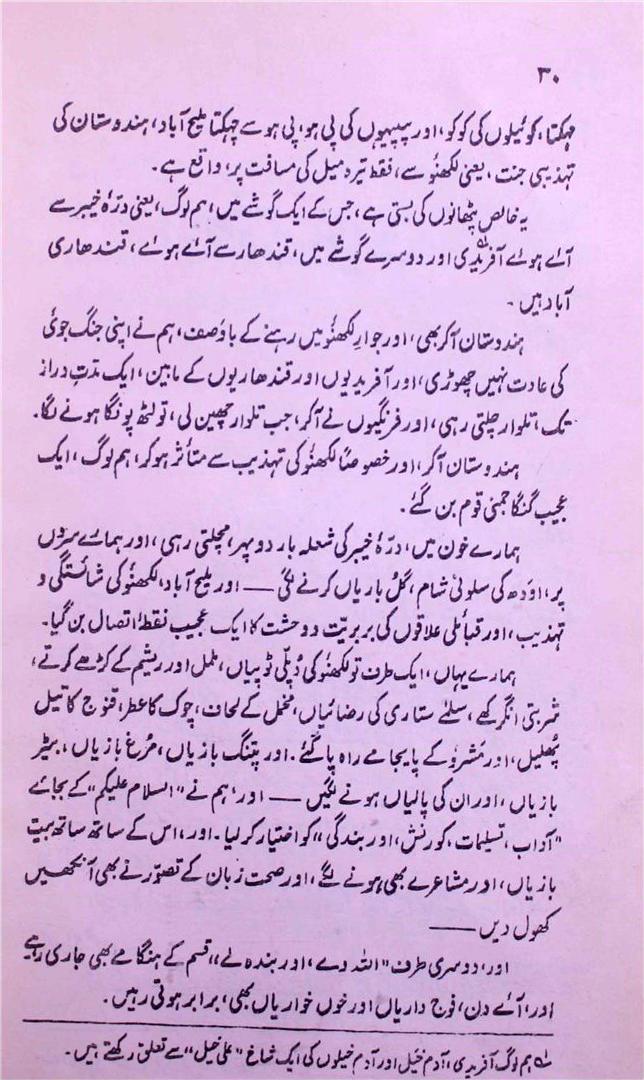 ۳۰
چہکتا، کوئیلوں کی کوکو، اور پپیہوں کی پی ہو، پی ہو سے چہکتا ملیح آباد، ہندوستان کی
تہذیبی جنت، یعنی لکھنؤ سے، فقط تیرہ میل کی مسافت پر، واقع ہے۔
یہ خالص پٹھانوں کی بستی ہے، جس کے ایک گوشے میں، ہم لوگ، یعنی درّۂ خیبر سے
آئے ہوئے آفریدی اور دوسرے گوشے میں، قندھار سے آئے ہوئے، قندھاری
آباد ہیں۔
ہندوستان آ کر بھی، اور جوارِ لکھنؤ میں رہنے کے باوُصف، ہم نے اپنی جنگ جوئی
کی عادت نہیں چھوڑی، اور آفریدیوں اور قندھاریوں کے مابین، ایک مدّتِ دراز
تک، تلوار چلتی رہی، اور فرنگیوں نے آ کر، جب تلوار چھین لی، تو لٹھ پونگا ہونے لگا۔
ہندوستان آ کر، اور خصوصاً لکھنؤ کی تہذیب سے متأثر ہو کر، ہم لوگ، ایک
عجیب گنگا جمنی قوم بن گئے۔
ہمارے خون میں، درّۂ خیبر کی شعلہ بار دوپہر، مچلتی رہی، اور ہمارے سروں
پر، اوَدھ کی سلونی شام، گُل باریاں کرنے لگی —— اور ملیح آباد، لکھنؤ کی شائستگی و
تہذیب، اور قبائلی علاقوں کی بربریّت و وحشت کا ایک عجیب نقطۂ اتصال بن گیا۔
ہمارے یہاں، ایک طرف تو لکھنؤ کی دُپلّی ٹوپیاں، ململ اور ریشم کے کڑھے کرتے،
شربتی انگرکھے، سلمے ستاری کی رضائیاں، مخمل کے لحاف، چوک کا عطر، قنوج کا تیل
پھُلیل، اور مَشروُ کے پایجامے راہ پا گئے۔ اور پتنگ بازیاں، مُرغ بازیاں، بٹیر
بازیاں، اور ان کی پالیاں ہونے لگیں —— اور، ہم نے "السلام علیکم" کے بجائے
"آداب، تسلیمات، کورنش، اور بندگی" کو اختیار کر لیا۔ اور، اس کے ساتھ ساتھ بیت
بازیاں، اور مشاعرے بھی ہونے لگے، اور صحت زبان کے تصوّر نے بھی آنکھیں
کھول دیں ——
اور، دوسری طرف "اللہ دے، اور بندہ لے" قسم کے ہنگامے بھی جاری رہے
اور، آئے دن، فوج داریاں اور خوں خواریاں بھی، برابر ہوتی رہیں۔
لے ہم لوگ آفریدی، آدم خیل اور آدم خیلوں کی ایک شاخ "علی خیل" سے تعلق رکھتے ہیں۔